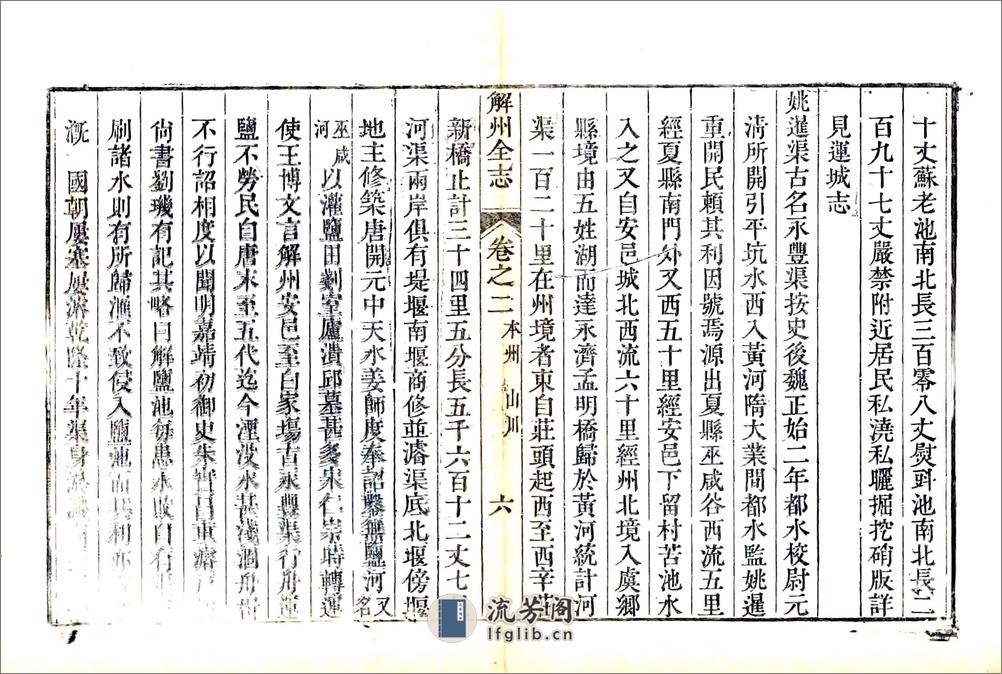 十丈蘇老池南北長三百零八丈熨㪷池南北長二
百九十七丈嚴禁附近居民私澆私曬掘挖硝版詳
見運城志
姚暹渠古名永豐渠按史後魏正始二年都水校尉元
清所開引平坑水西入黃河隋大業間都水監姚暹
重開民賴其利因號焉源出夏縣巫咸谷西流五里
經夏縣南門外又西五十里經安邑下留村苦池水
入之又自安邑城北西流六十里經州北境入虞鄉
縣境由五姓湖而達永濟孟明橋歸於黃河統計河
渠一百二十里在州境者東自莊頭起西至西辛莊
解州全志 卷之二 本州 山川 六
新橋止計三十四里五分長五千六百十二丈七
河渠兩岸俱有堤堰南堰商修並濬渠底北堰傍堰
地主修築唐開元中天水姜師度奉詔鑿無鹽河又名
巫咸河以灌鹽田剗室廬潰邱墓甚多宋仁宗時轉運
使王博文言解州安邑至白家場古永豐渠行舟運
鹽不勞民自唐末至五代迄今湮没水甚淺涸舟楫
不行詔相度以聞明嘉靖初御史朱實昌重濬
尙書劉璣有記其略曰解鹽池每患水敗自行
刷諸水則有所歸滙不致侵入鹽池而其利亦
溉 國朝屢塞屢濬乾隆十年渠身
流芳阁
lfglib.cn